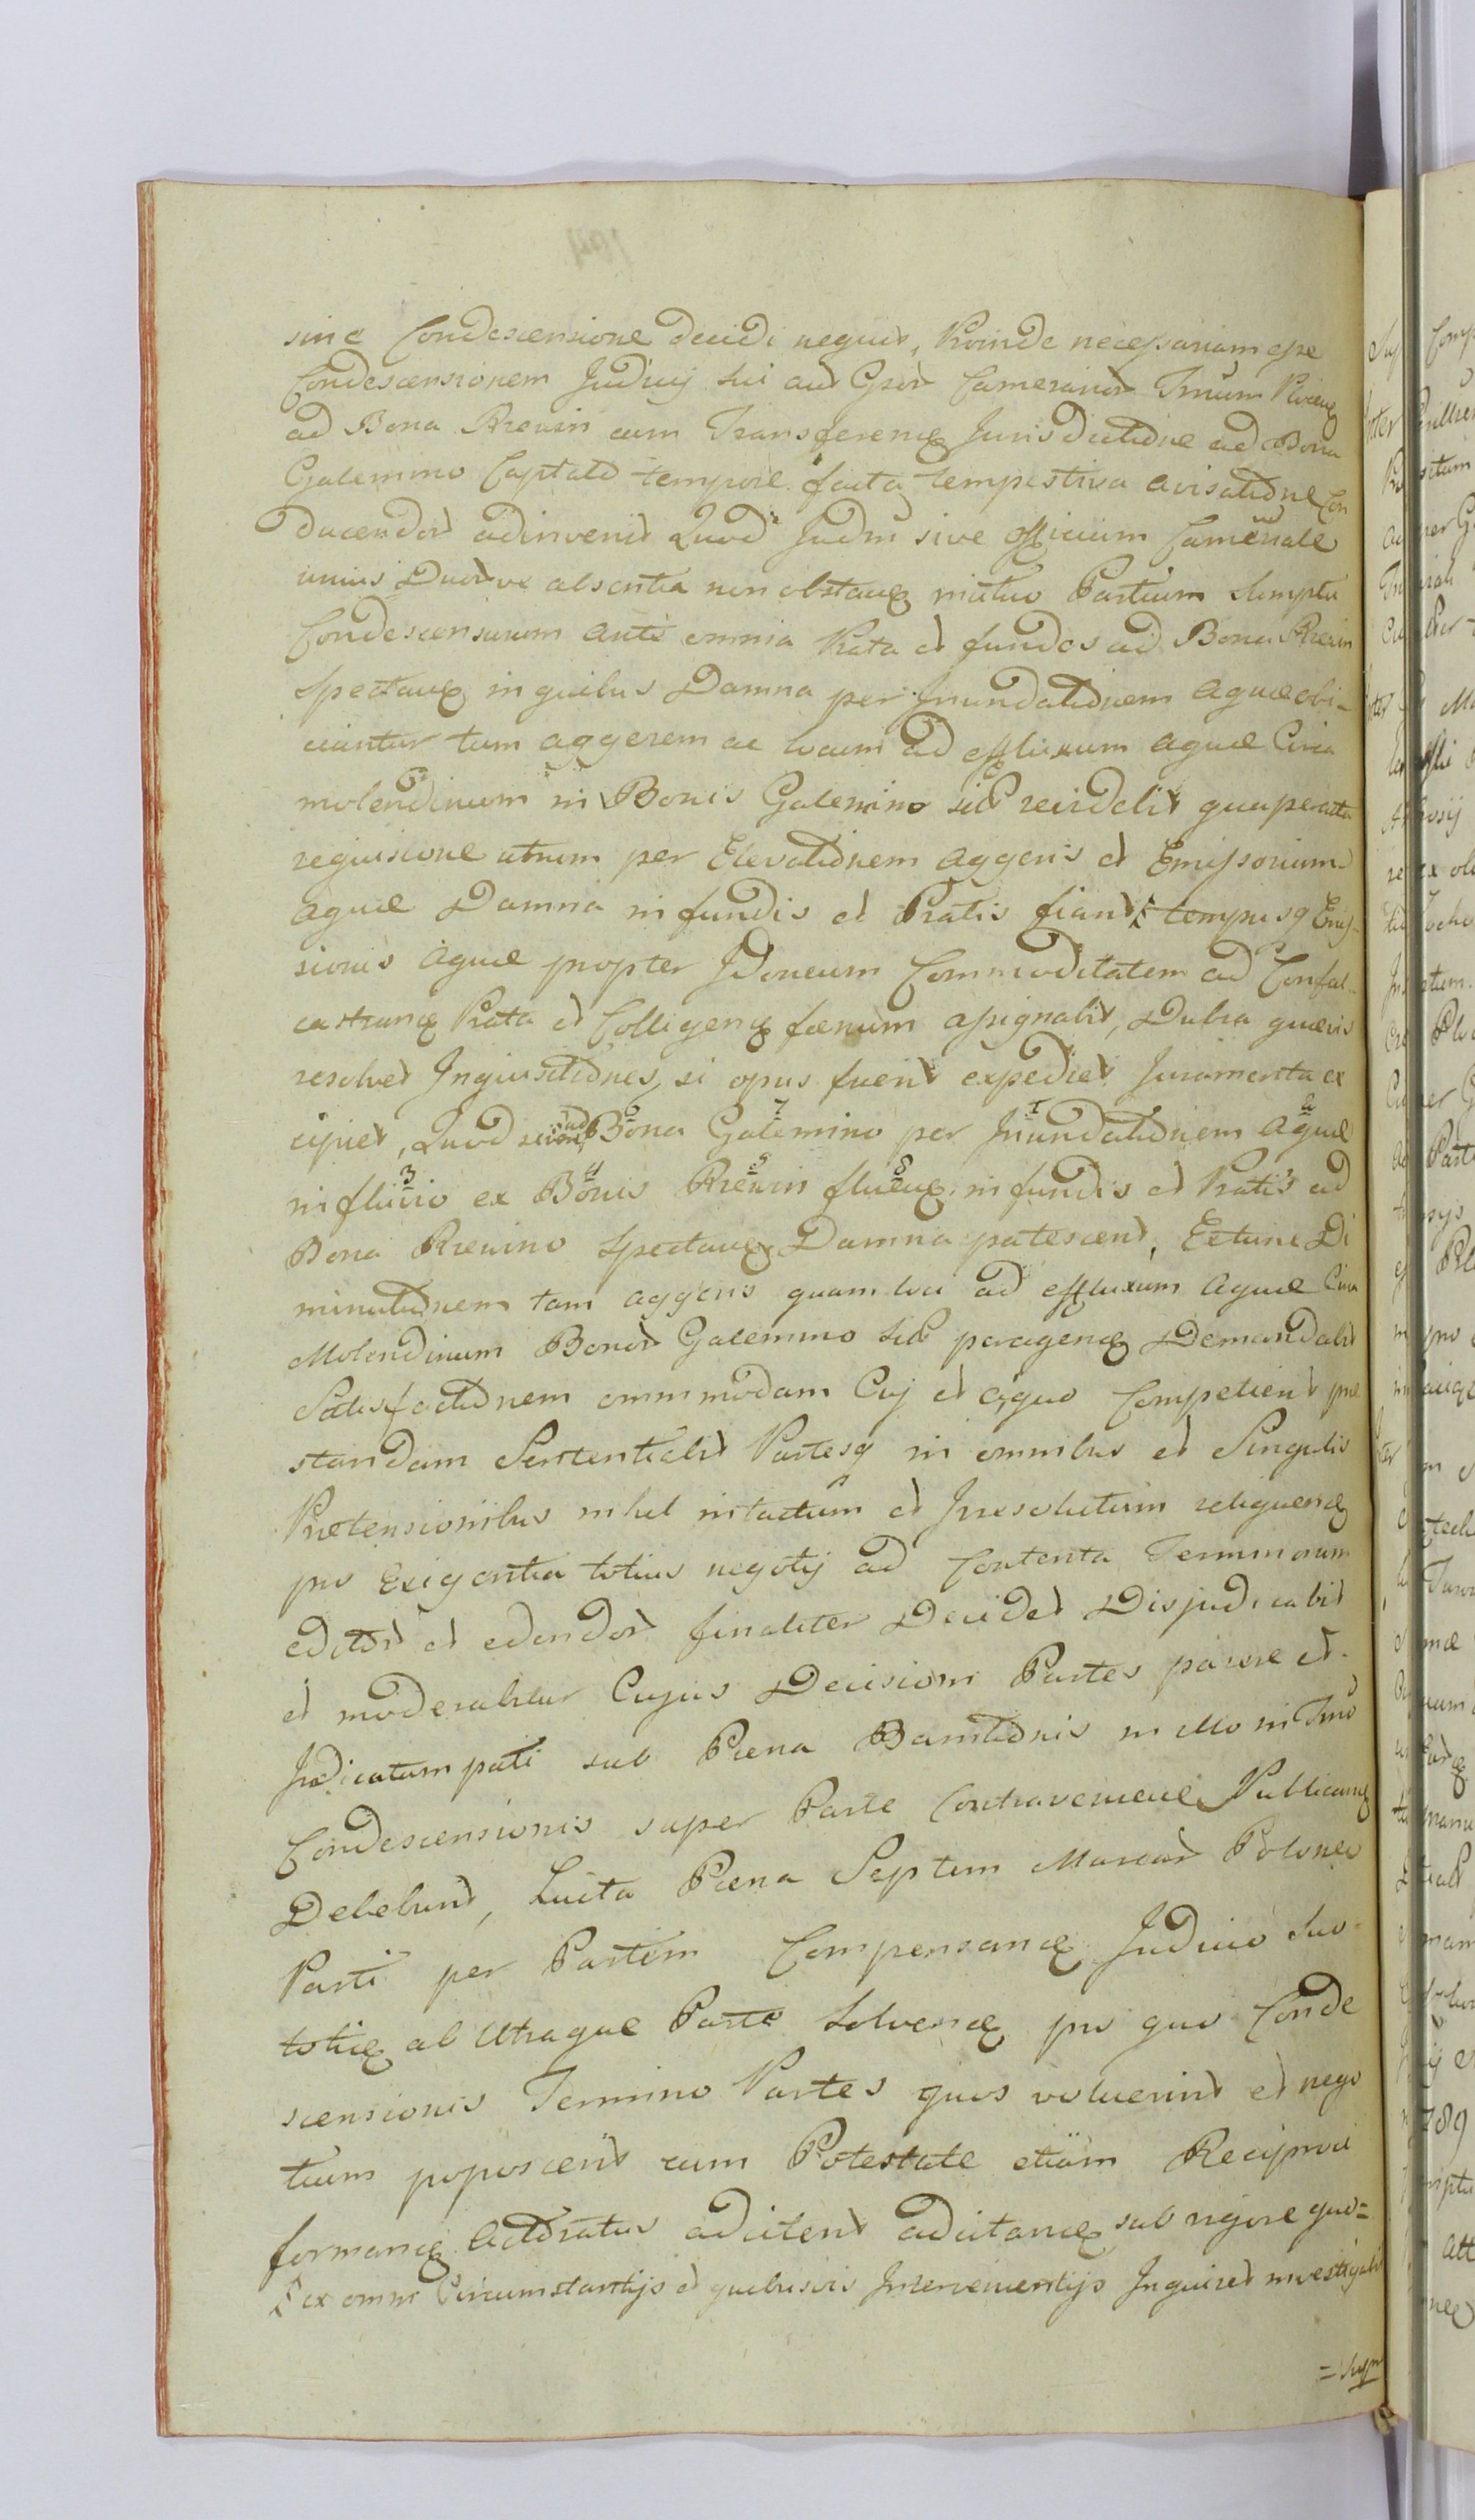 sine Condescensione decidi nequit, Proinde necessariam esse
Condescensionem Judicij sui aut Gsor Camerarior Trrum
ad Bona Krerin cum Transferenq Jurisdictione ad Bona
Galemino Captato tempore facta tempestiva avisatione Con
ducendor adinvenit Quod Judm sive officium Camerale
unius Duor ve absentia non obstanq mutuo Partium Sumptu
Condescensurum ante omnia Prata et fundos ad Bona Krerin
Spectanq in quibus Damna per Jnundationem aquæ obi-
ciuntur tum aggerem ac locum ad effluxum aquæ Circa
molendinum in Bonis Galemino sit revidebit qua peracta
requisicione utrum per Elevationem aggeris et Emissorium
aquæ Damna in fundis et Pratis fiant tempusq Emis-
sionis aquæ propter Jdoneum Commoditatem ad Confal-
castranq Prata et Colligenq fœnum assignabit, Dubia quævis
resolvet Jnquisitiones, si opus fuerit expediet Juramenta ex
cipiet, Quod si ad Bona Galemino per Jnundationem aquæ
in fluvio ex Bonis Krewin fluenq in fundis et Pratis ad
Bona Krewino Spectanq Damna patescent, Extunc Di
minutionem tam aggeris quam loci ad effluxum aquæ Circa
Molendinum Bonor Galemino sit peragenq Demandabit
Satisfactionem ommmodam Cuj et a quo Competierit præ
standam Sententiabit Partesq in omnibus et Singulis
Prætensionibus nihil intactum et Jrresolutum reliquenq
pro Exigentia totius negotij ad Contenta Terminorum
editor et edendor finaliter Decidet Disjudicabit
et moderabitur Cujus Decisioni Partes parere et
Judicatum pati sub Pœna Bannitionis in Mo in Trno
Condescensionis super Parte Contraveniene Publicanq
Debebunt, Luita Pœna Septem Marcar Polonco
Parti per Partem Compensanq Judicio suo
totieq ab Utraque Parte Solvenq pro quo Conde
scensionis Termino Partes quos voluerint et nego
tium poposcerit cum Potestate etiam Reciproci
formanq Actoratus adcitent adcitanq sub rigore quo=
ex omni Circumstantijs et quibusvis Jntervenientijs Jnquiret investigabit
= Supr